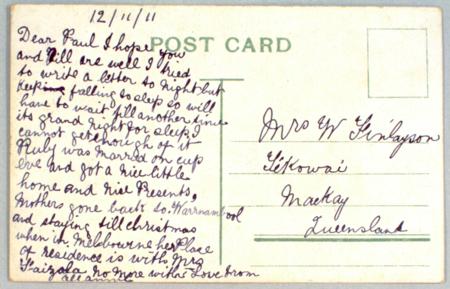 12/11/11
POST CARD
Dear Paul I hope you
and Will are well I tried
to write a letter to night but
keep falling to sleep so will
have to wait till another time
its grand night for sleep, I
cannot get enough of it
Ruby was married on cup
Eve and got a nice little
home and nice Presents,
Mothers gone back to Warrnambool
and staying till Christmas
when in Melbourne her Place
of residence is with Mrs
no more with Love from
Mrs W Finlayson
Tekowai
Mackay
Queensland